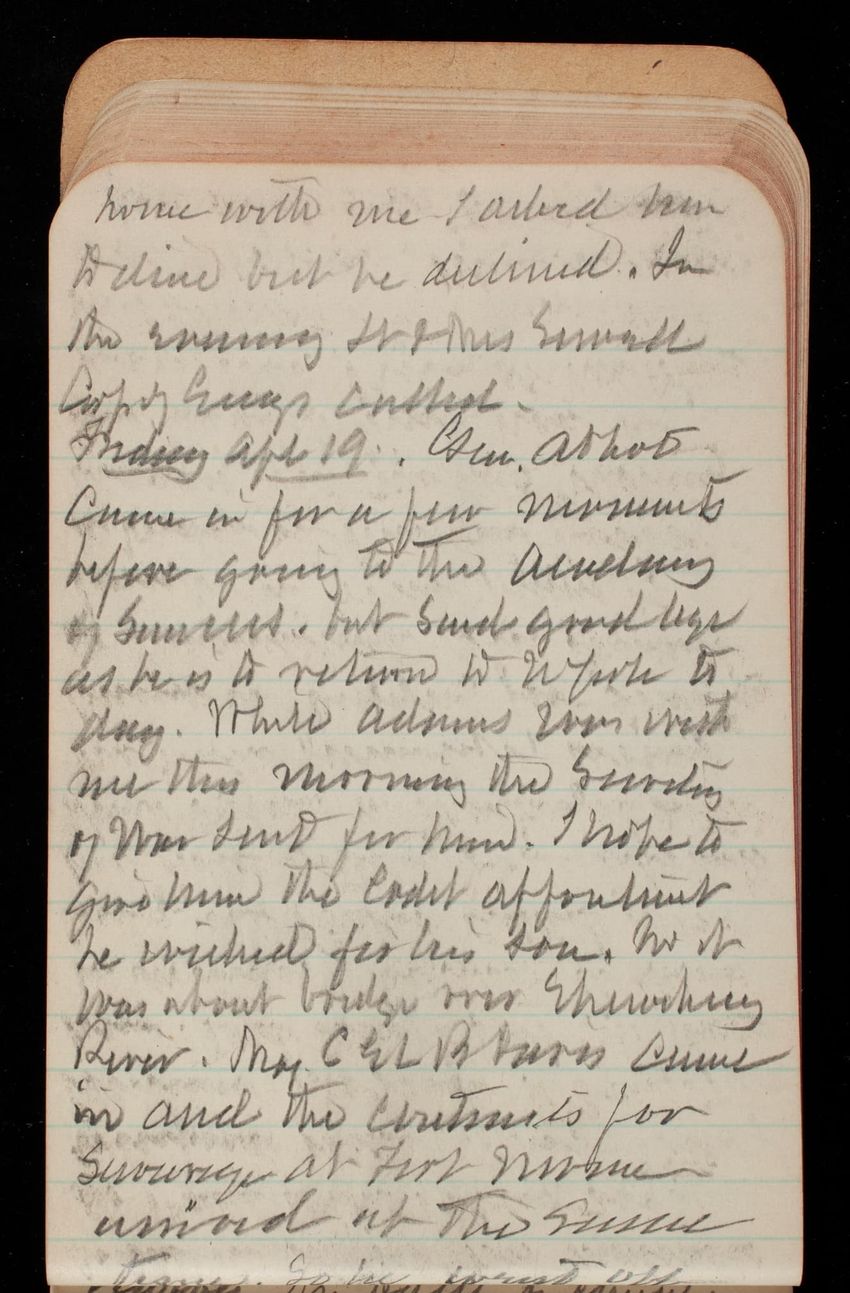 home with me I asked him
to dine but he declined. In
the evening Lt & Mrs Sewall
Corps of Engrs called.
Friday Apl 19. Gen. Abbot
came in for a few moments
before going to the Academy
of Sciences. but said good bye
as he is to return to W Point to
day. While Adams was with
me this morning the Secretary
of War sent for him. I hope to
give him the Cadet appointment
he wished for his son. No it
was about bridge over
River. Maj C E L B Davis came
in and the contracts for
Sewerage at Fort Monroe
arrived at the same
time. So he went off